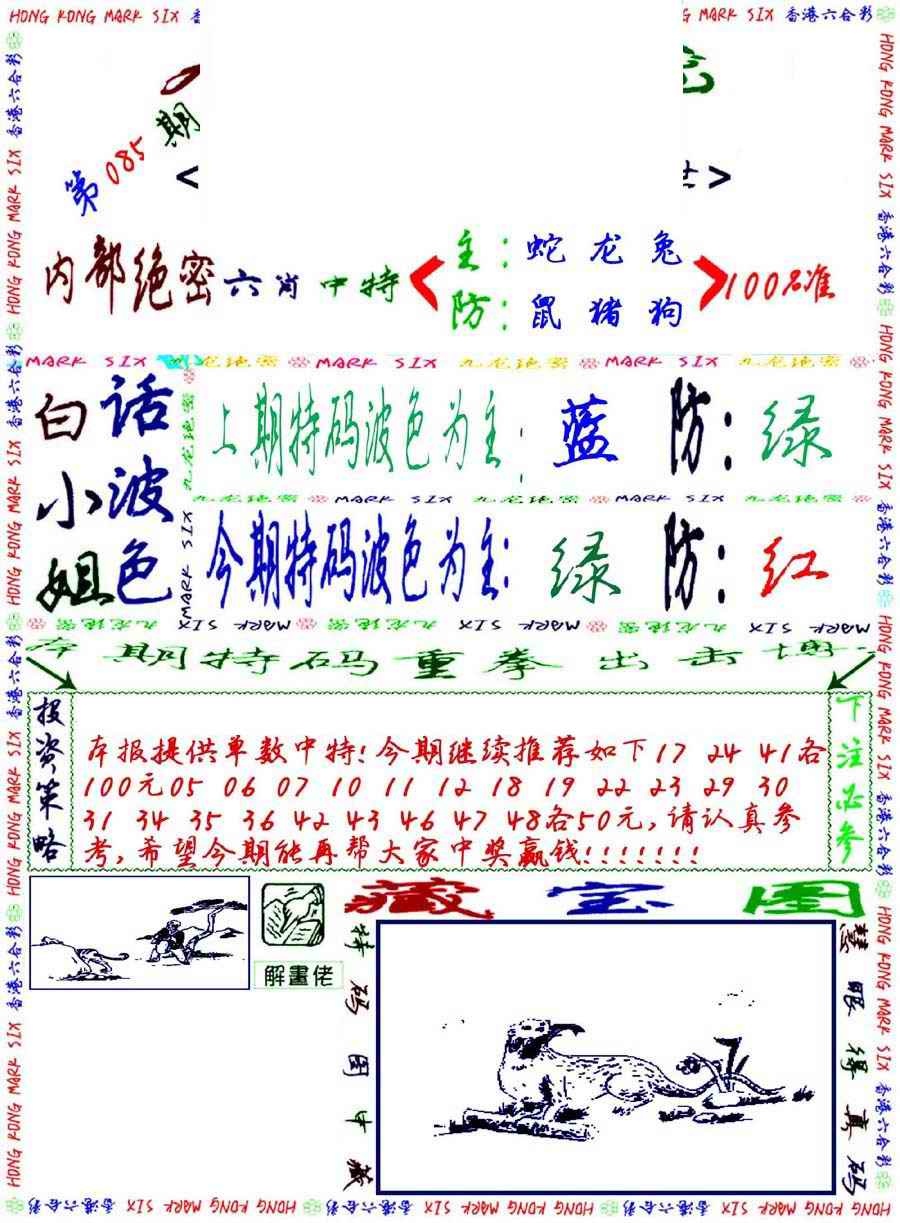 HONG KONG MARK SIX
MARK SIX 香港六合彩
第085期
内部绝密六肖中特
主：蛇 龙 兔
防：鼠 猪 狗
100%准
MARK SIX 九龙绝密 MARK SIX 九龙绝密 MARK SIX 九龙绝密
白小姐
话波色
上期特码波色为主：蓝 防：绿
九龙绝密 MARK SIX 九龙绝密 MARK SIX
今期特码波色为主：绿 防：红
九龙绝密 MARK SIX 九龙绝密 MARK SIX 九龙绝密 MARK SIX
本期特码重拳出击
投资策略
本报提供单数中特！今期继续推荐如下17 24 41各
100元05 06 07 10 11 12 18 19 22 23 29 30
31 34 35 36 42 43 46 47 48各50元，请认真参
考，希望今期能再帮大家中奖赢钱！！！！！！！
下注必参
解畫佬
藏宝图
特码图中藏
慧眼得真码
香港六合彩 HONG KONG MARK SIX 香港六合彩 HONG KONG MARK SIX 香港六合彩 HONG KONG MARK SIX